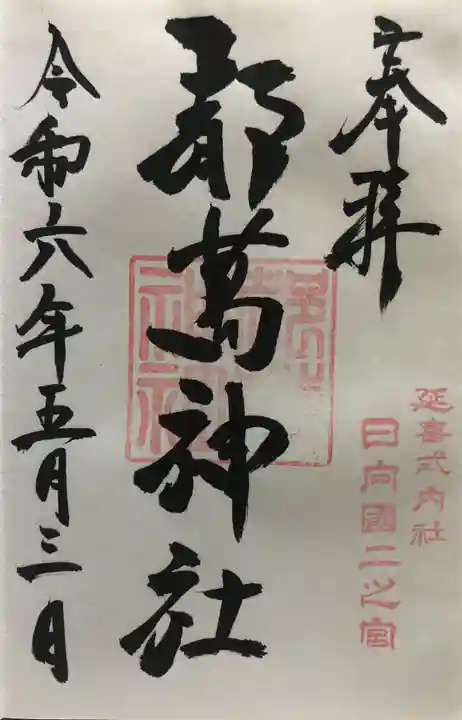 奉拝
延喜式内社
日向國二之宮
都萬神社
令和六年五月三日